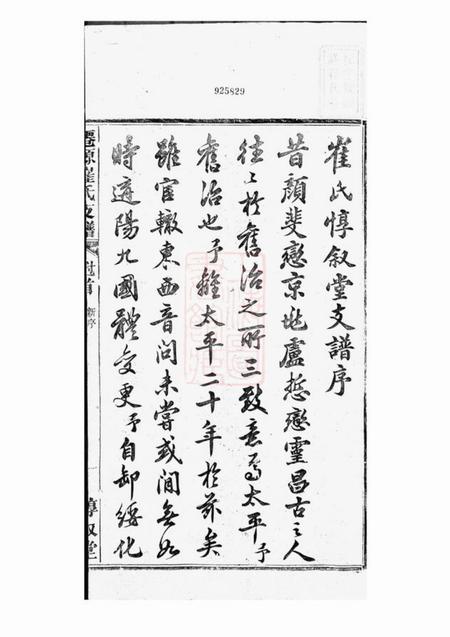 925829
崔氏惇叙堂支譜序
昔顏斐戀京兆盧悊戀靈昌古之人
往〻於舊治之所三致意焉太平予
舊治也予離太平二十年於茲矣
雖官轍東西音問未嘗或間無如
時遭陽九國體變更予自卸綏化
崔氏支譜
卷首
新序
惇叙堂